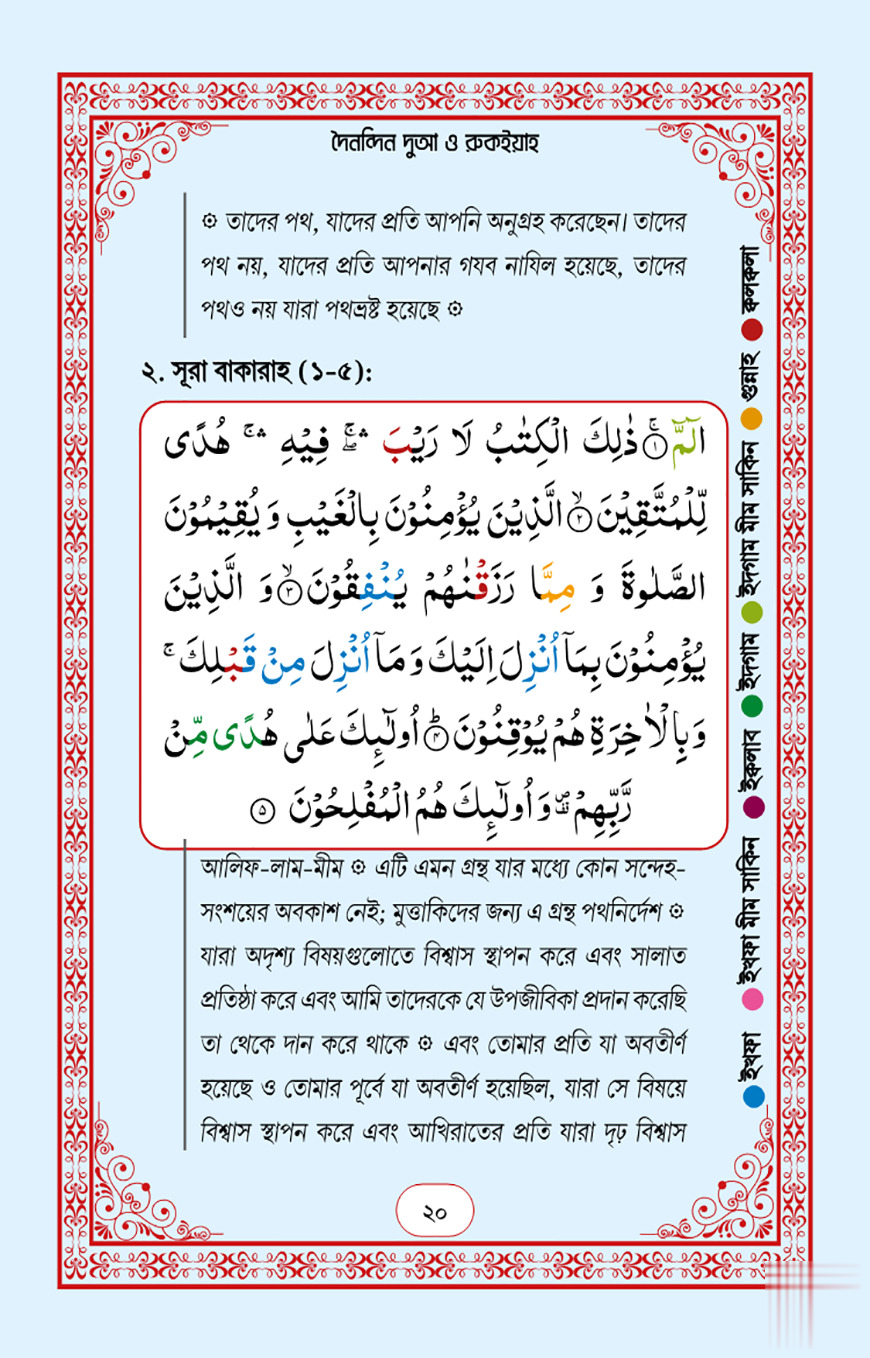 দৈনন্দিন দুআ ও রুকইয়াহ
۞ তাদের পথ, যাদের প্রতি আপনি অনুগ্রহ করেছেন। তাদের
পথ নয়, যাদের প্রতি আপনার গযব নাযিল হয়েছে, তাদের
পথও নয় যারা পথভ্রষ্ট হয়েছে ۞
২. সূরা বাকারাহ (১-৫):
الٓمّٓ ۚ﴿۱﴾ ذٰلِكَ الْكِتٰبُ لَا رَیْبَ ۛۖۚ فِیْهِ ۛۚ هُدًی
لِّلْمُتَّقِیْنَ ۙ﴿۲﴾ الَّذِیْنَ یُؤْمِنُوْنَ بِالْغَیْبِ وَ یُقِیْمُوْنَ
الصَّلٰوةَ وَ مِمَّا رَزَقْنٰهُمْ یُنْفِقُوْنَ ۙ﴿۳﴾ وَ الَّذِیْنَ
یُؤْمِنُوْنَ بِمَاۤ اُنْزِلَ اِلَیْكَ وَ مَاۤ اُنْزِلَ مِنْ قَبْلِكَ ۚ
وَ بِالْاٰخِرَةِ هُمْ یُوْقِنُوْنَ ؕ﴿۴﴾ اُولٰٓئِكَ عَلٰی هُدًی مِّنْ
رَّبِّهِمْ ٭ وَ اُولٰٓئِكَ هُمُ الْمُفْلِحُوْنَ ﴿۵﴾
আলিফ-লাম-মীম ۞ এটি এমন গ্রন্থ যার মধ্যে কোন সন্দেহ-
সংশয়ের অবকাশ নেই; মুত্তাকিদের জন্য এ গ্রন্থ পথনির্দেশ ۞
যারা অদৃশ্য বিষয়গুলোতে বিশ্বাস স্থাপন করে এবং সালাত
প্রতিষ্ঠা করে এবং আমি তাদেরকে যে উপজীবিকা প্রদান করেছি
তা থেকে দান করে থাকে ۞ এবং তোমার প্রতি যা অবতীর্ণ
হয়েছে ও তোমার পূর্বে যা অবতীর্ণ হয়েছিল, যারা সে বিষয়ে
বিশ্বাস স্থাপন করে এবং আখিরাতের প্রতি যারা দৃঢ় বিশ্বাস
● ইখফা ● ইখফা মীম সাকিন ● ইক্বলাব ● ইদগাম ● ইদগাম মীম সাকিন ● গুন্নাহ ● ক্বলকলা
২০